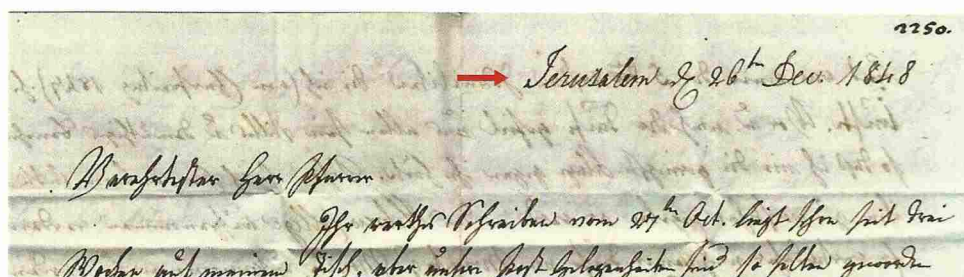 2250.
Jerusalem d 26ten Dec. 1848
Verehrtester Herr Pfarrer
Ihr werthes Schreiben vom 27ten Oct. liegt schon seit drei
Wochen auf meinem Tisch, aber unsere Post gelegenheiten sind so selten geworden